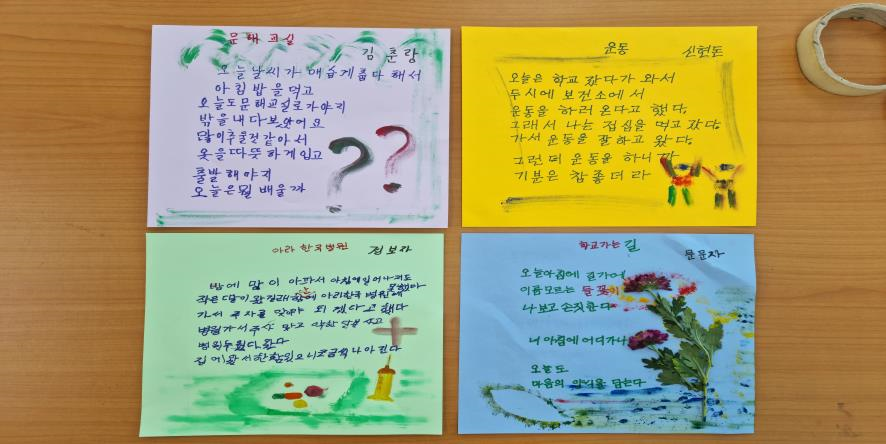 문해교실
김춘랑
오늘날씨가 매습게춥다 해서
아침밥을먹고
오늘도문해교실로가야지
밖을내다보았어요
많이추울것같아서
옷을따뜻하게입고
출발해야지
오늘은뭘배울까
운동
신현돈
오늘은 학교 갔다가 와서
두시에 보건소에서
운동을 하러 온다고 했다.
그래서 나는 점심을 먹고 갔다.
가서 운동을 잘하고 왔다.
그런데 운동을 하니까
기분은 참 좋더라
아라한국병원
밤에 많이 아파서 아침에일어나지도
못했다
작은딸이 아라한국병원에
가서 주사를 맞아야 되겠다고했다
병원가서주사 맞고
학교가는길
문문자
오늘아침에 길가에
이름모르는 들꽃이
나보고 손짓한다
너 아침에 어디가니
오늘도
마음의 양식을 담는다